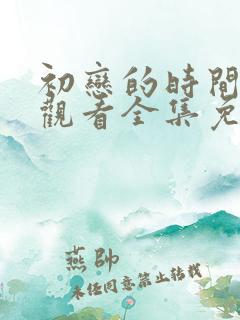 初戀的時間
觀看全集免
燕帥
未任同意禁止轉載